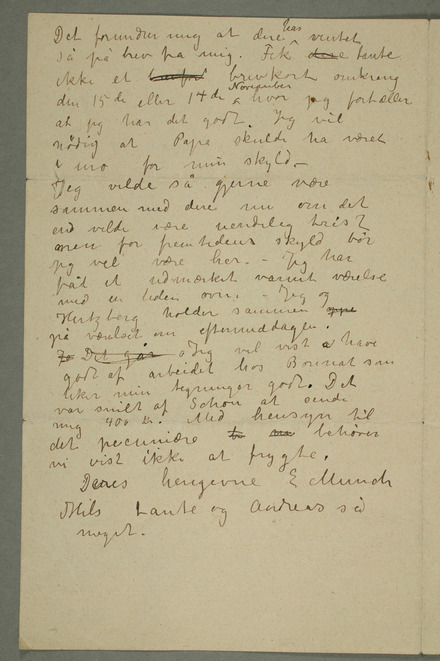 Det forundrer mig at dere har ventet
så på brev fra mig. Fik dere tante
ikke et brevkort omkring
den 15de eller 14de November hvor jeg fortæller
at jeg har det godt. Jeg vil
nødig at Papa skulde ha været
i uro for min skyld –
Jeg vilde så gjerne være
sammen med dere nu om det
end vilde være uendelig trist
men for fremtidens skyld bør
jeg vel være her. – Jeg har
fåt et udmærket varmt værelse
med en liden ovn. – Jeg og
Hertzberg holder sammen
på værelset om eftermiddagen.
Jo Det går Jeg vil vist have
godt af arbeidet hos Bonnat som
liker min tegninger godt. Det
var snilt af Schou at sende
mig 400 kr. Med hensyn til
det pecuniære behøver
vi vist ikke at frygte.
Deres hengivne E Munch
Hils tante og Andreas så
meget.